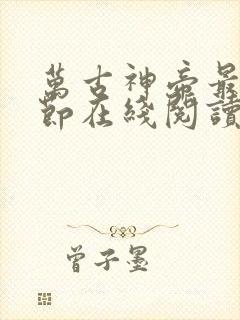 萬古神帝最
節在綫閱讀
曾子墨